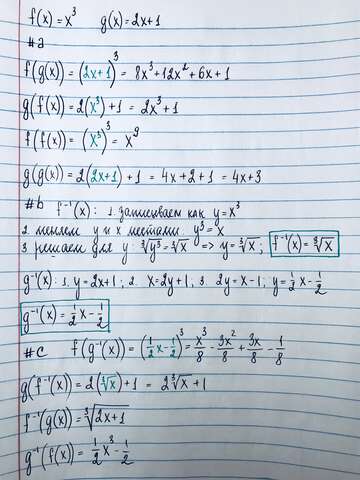 f(x) = x³ g(x) = 2x+1
#a
f(g(x)) = (2x+1)³ = 8x³+12x²+6x+1
g(f(x)) = 2(x³)+1 = 2x³+1
f(f(x)) = (x³)³ = x⁹
g(g(x)) = 2(2x+1)+1 = 4x+2+1 = 4x+3
#b f⁻¹(x): 1. записываем как y=x³
2. меняем y и x местами: y³=x
3. решаем для y: ∛y³ = ∛x => y=∛x; f⁻¹(x)=∛x
g⁻¹(x): 1. y=2x+1; 2. x=2y+1; 3. 2y=x-1; y=½x-½
g⁻¹(x)=½x-½
#c f(g⁻¹(x)) = (½x-½)³ = x³/8 - 3x²/8 + 3x/8 - 1/8
g(f⁻¹(x)) = 2(∛x)+1 = 2∛x+1
f⁻¹(g(x)) = ∛(2x+1)
g⁻¹(f(x)) = ½x³-½